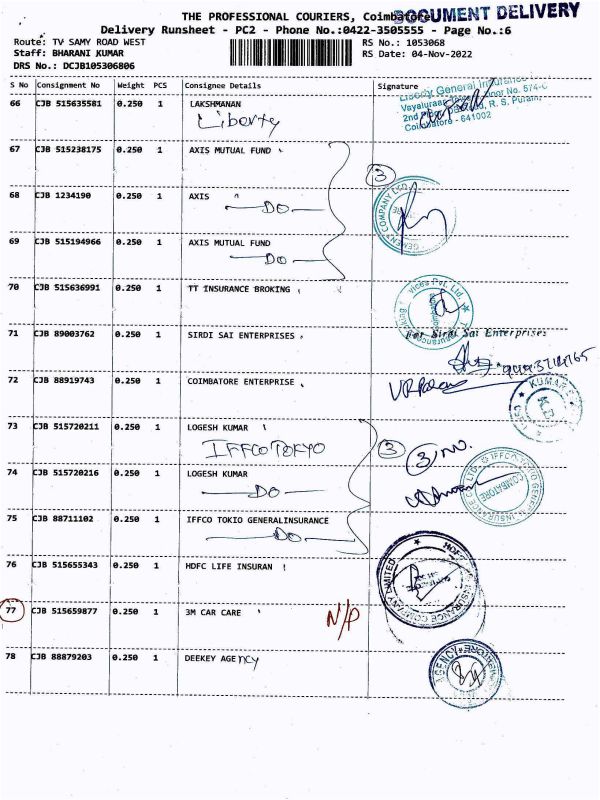 THE PROFESSIONAL COURIERS, Coimbatore
DOCUMENT DELIVERY
Delivery Runsheet - PC2 - Phone No.:0422-3505555 - Page No.:6
Route: TV SAMY ROAD WEST
RS No.: 1053068
Staff: BHARANI KUMAR
RS Date: 04-Nov-2022
DRS No.: DCJB105306806
S No Consignment No Weight PCS Consignee Details Signature
66 CJB 515635581 0.250 1 LAKSHMANAN
Liberty
Liberty General Insurance
No. 574-C
2nd R. S. Puram,
Coimbatore - 641002
67 CJB 515238175 0.250 1 AXIS MUTUAL FUND
3
68 CJB 1234190 0.250 1 AXIS
DO
69 CJB 515194966 0.250 1 AXIS MUTUAL FUND
DO
70 CJB 515636991 0.250 1 TT INSURANCE BROKING
71 CJB 89003762 0.250 1 SIRDI SAI ENTERPRISES
For Sirdi Sai Enterprises
72 CJB 88919743 0.250 1 COIMBATORE ENTERPRISE
73 CJB 515720211 0.250 1 LOGESH KUMAR
IFFCO TOKYO
3
3 NO.
74 CJB 515720216 0.250 1 LOGESH KUMAR
DO
IFFCO TOKIO GENERAL INSURANCE CO. LTD.
COIMBATORE
75 CJB 88711102 0.250 1 IFFCO TOKIO GENERALINSURANCE
DO
76 CJB 515655343 0.250 1 HDFC LIFE INSURAN
HDFC INSURANCE COMPANY LIMITED
77 CJB 515659877 0.250 1 3M CAR CARE
N/P
78 CJB 88879203 0.250 1 DEEKEY AGENCY
AGENCY